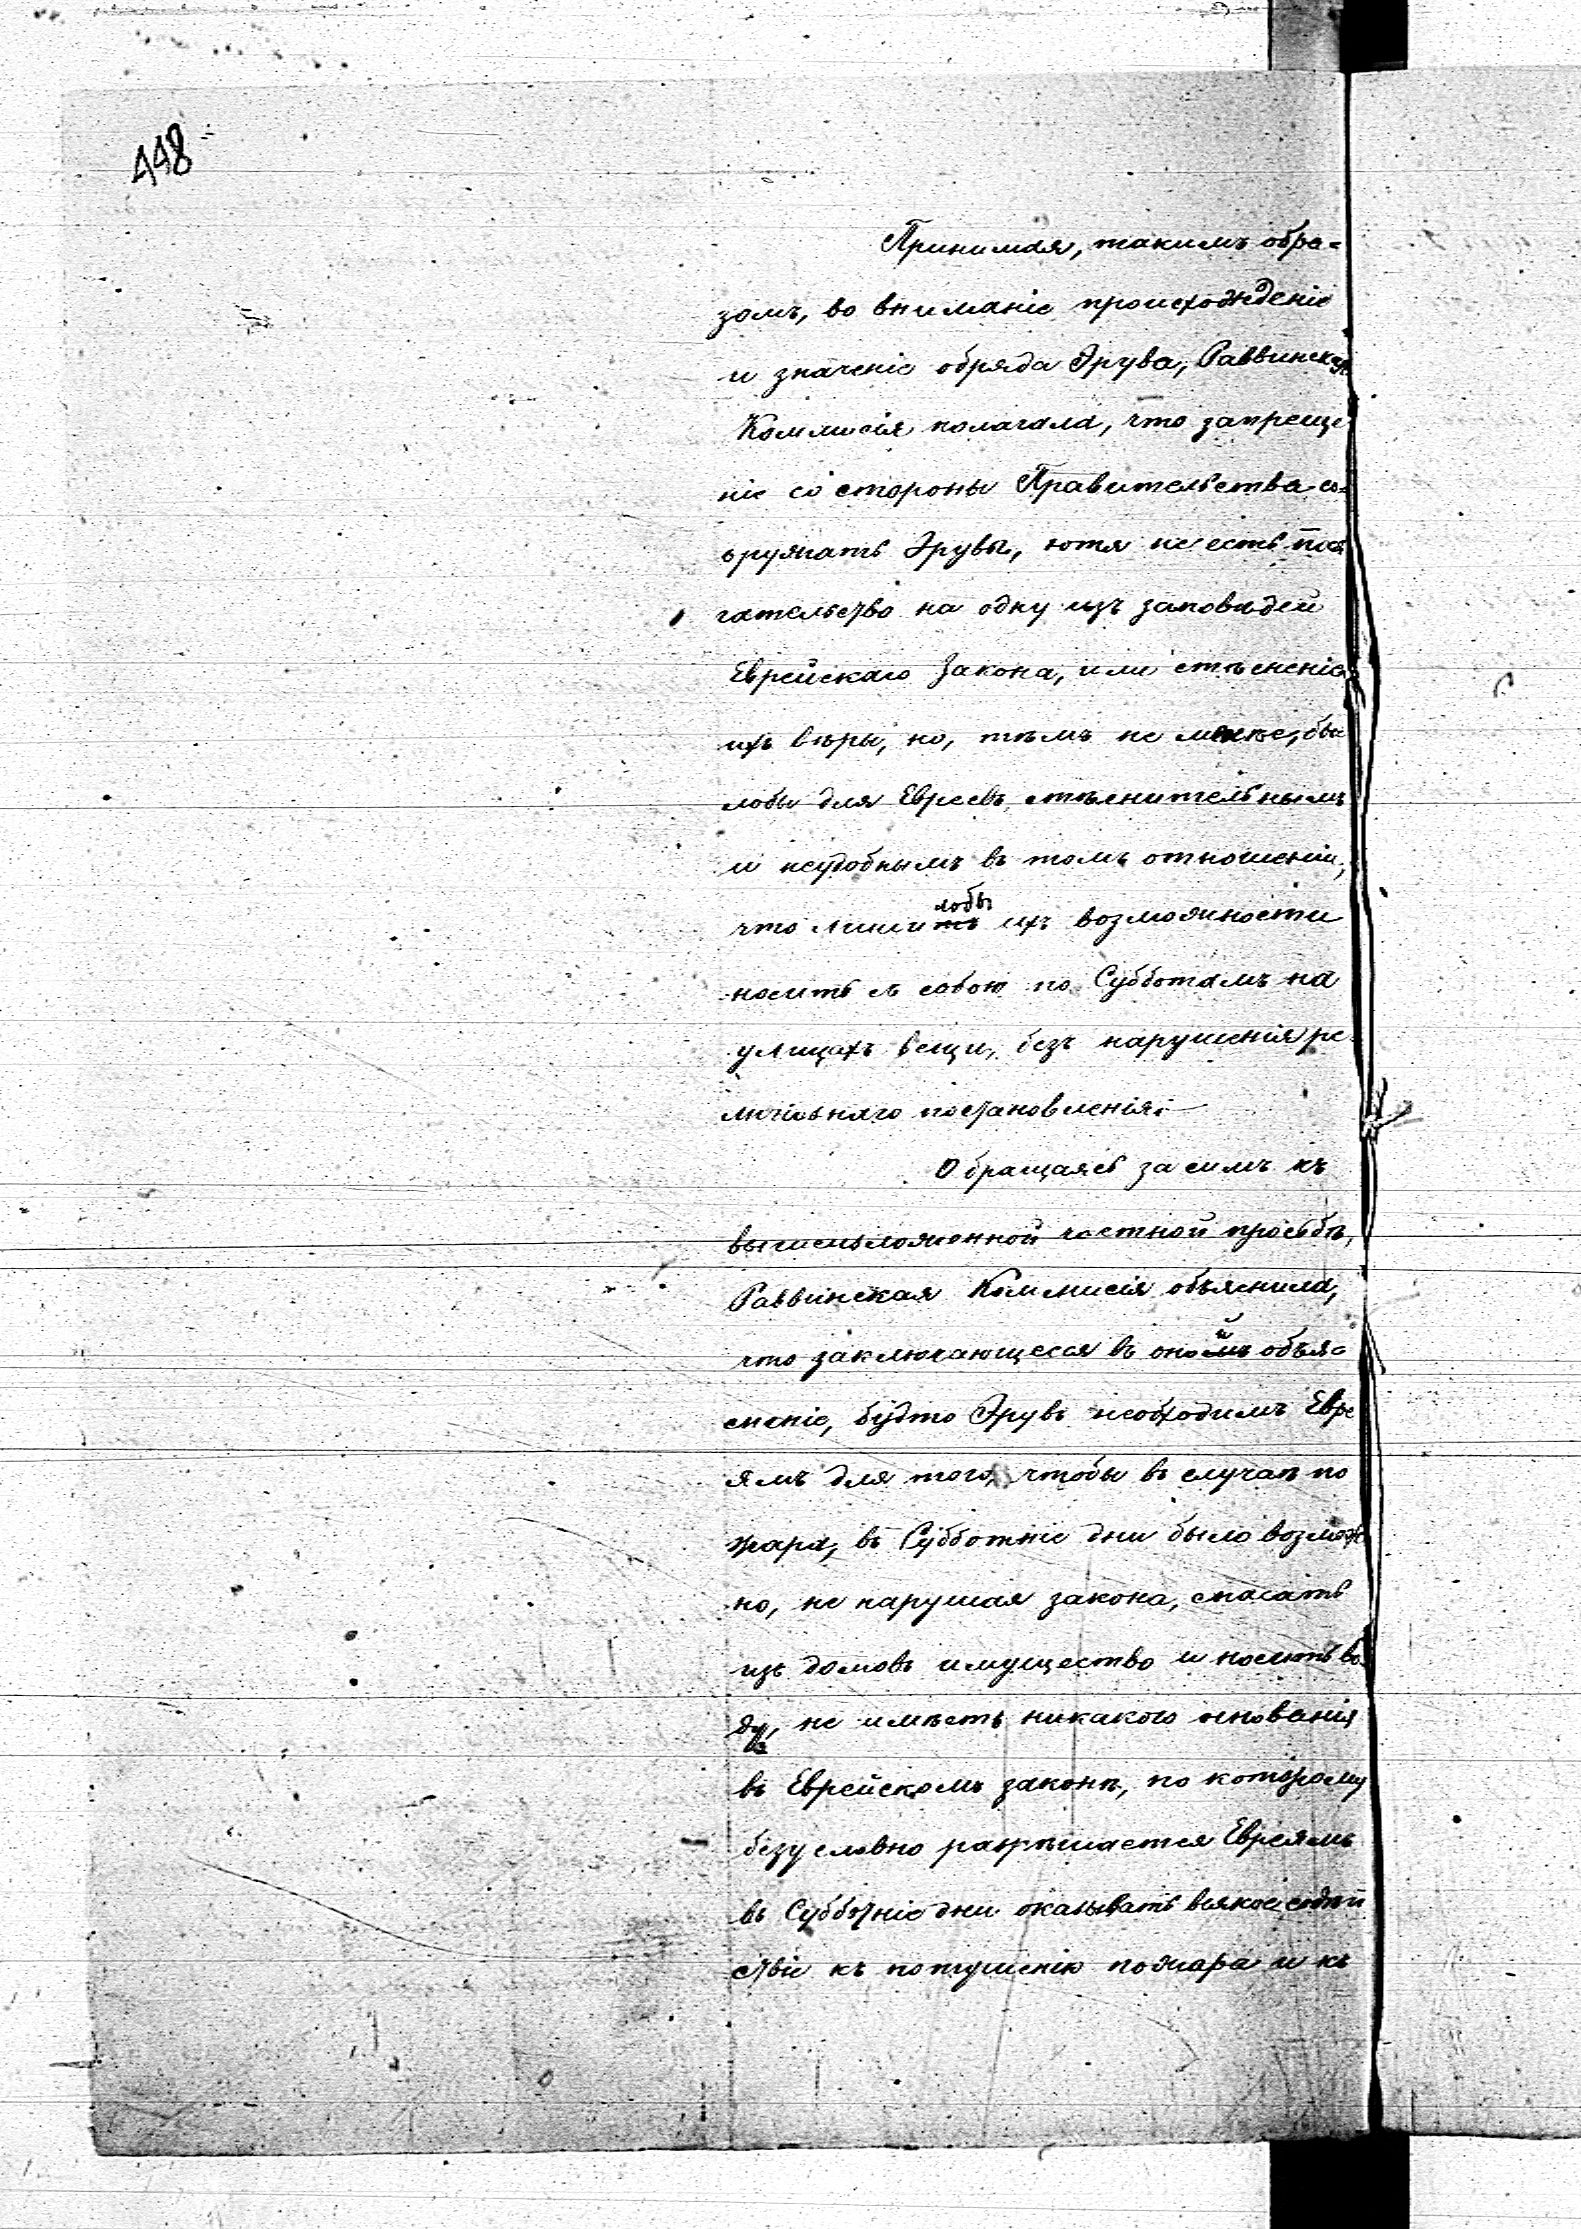 448
Принимая, такимъ обра-
зомъ, во вниманіе происхожденіе
и значеніе обряда Эрува, Раввинская
Коммисія полагала, что запреще
ніе со стороны Правительства со-
оружать Эрувы, хотя не есть пося
гательство на одну изъ заповѣдей
Еврейскаго Закона, или стѣсненіе
ихъ вѣры, но, тѣмъ не менѣе, бы
лобы для Евреевъ стѣснительнымъ
и неудобнымъ въ томъ отношеніи,
что лишилобы ихъ возможности
носить съ собою по Субботамъ на
улицахъ вещи, безъ нарушенія ре-
лигіознаго постановленія.—
Обращаясь за симъ къ
вышеизложенной частной просьбѣ,
Раввинская Коммисія объяснила,
что заключающееся въ оной объя-
сненіе, будто Эрувъ необходимъ Евре
ямъ для того, чтобы въ случаѣ по
жара, въ Субботніе дни было возмож
но, не нарушая закона, спасать
изъ домовъ имущество и носить во-
ду, не имѣетъ никакого основанія
въ Еврейскомъ законѣ, по которому
безусловно разрѣшается Евреямъ
въ Субботніе дни оказывать всякое содѣй
ствіе къ потушенію пожара и къ